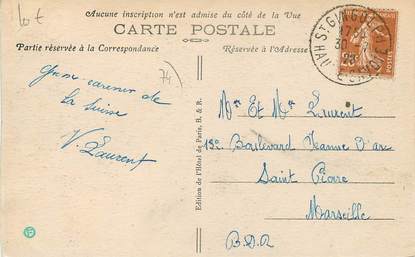 lot
Aucune inscription n'est admise du côté de la Vue
CARTE POSTALE
Partie réservée à la Correspondance
Réservée à l'Adresse
74
de
la Suisse
V. Laurent
Edition de l'Hôtel de Paris, B. & R.
Mr Et Mme Laurent
Boulevard Jeanne D'arc
Saint Pierre
Marseille
B.D.R
ST GINGOLPH
HAUTE SAVOIE